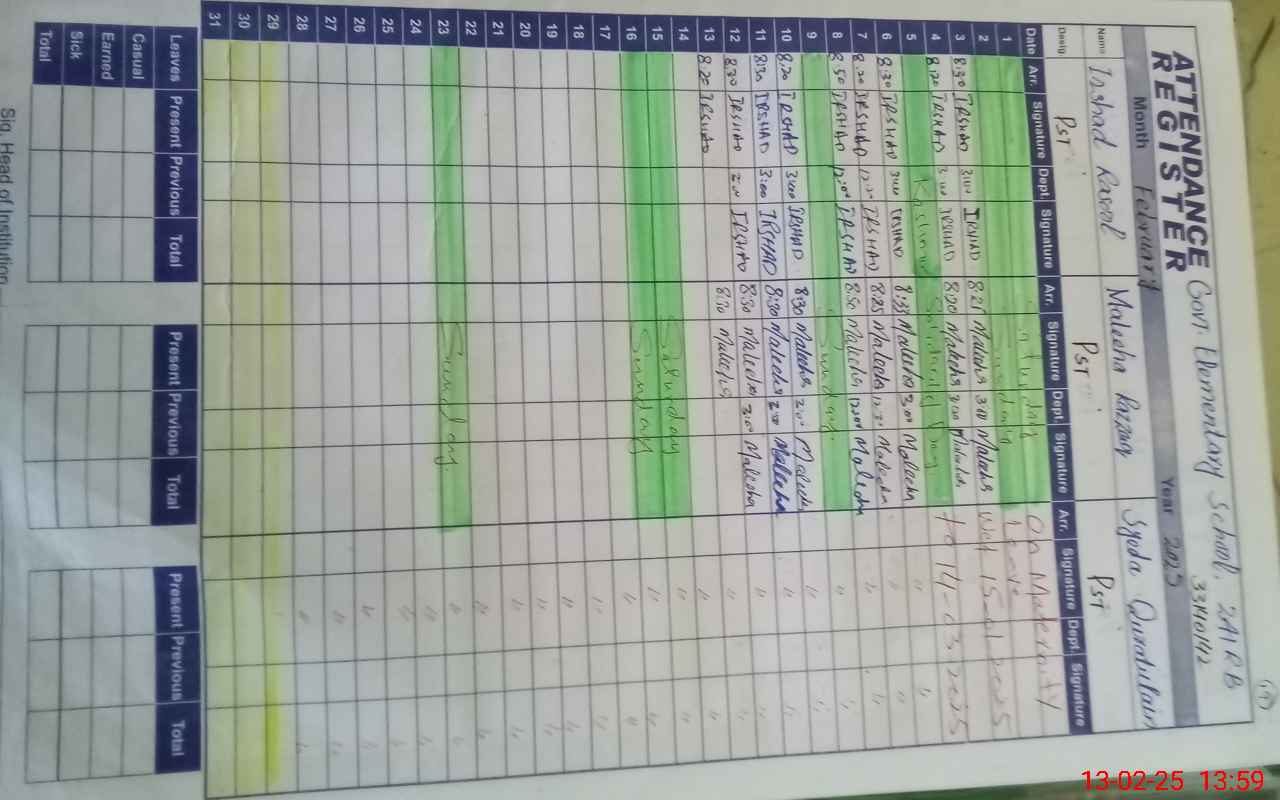 ATTENDANCE REGISTER
Govt. Elementary School. 241 RB
33140142
Month February Year 2025
Name Irshad Rasool Maleeha Razzaq Syeda
Desig. PST PST PST
Date Arr. Signature Dept. Signature Arr. Signature Dept. Signature Arr. Signature Dept. Signature
1 Saturday On Maternity
2 Sunday Leave
3 8:30 IRSHAD 3:00 IRSHAD 8:25 Maleeha 3:00 Maleeha
4 8:20 IRSHAD 3:00 IRSHAD 8:20 Maleeha 3:00 Maleeha to 14-03-2025
5 Kashmir Solidarity Day
6 8:30 IRSHAD 3:00 IRSHAD 8:35 Maleeha 3:00 Maleeha
7 8:20 IRSHAD IRSHAD 8:25 Maleeha Maleeha
8 8:50 IRSHAD 12:00 IRSHAD 8:50 Maleeha 12:00 Maleeha
9 Sunday
10 8:20 IRSHAD 3:00 IRSHAD 8:30 Maleeha 3:00 Maleeha
11 8:30 IRSHAD 3:00 IRSHAD 8:30 Maleeha Maleeha
12 8:30 IRSHAD IRSHAD 8:30 Maleeha 3:00 Maleeha
13 8:20 IRSHAD 8:30 Maleeha
14
15 Saturday
16 Sunday
17
18
19
20
21
22
23 Sunday
24
25
26
27
28
29
30
31
Leaves Present Previous Total Present Previous Total Present Previous Total
Casual
Earned
Sick
Total
Sig. Head of Institution
13-02-25 13:59